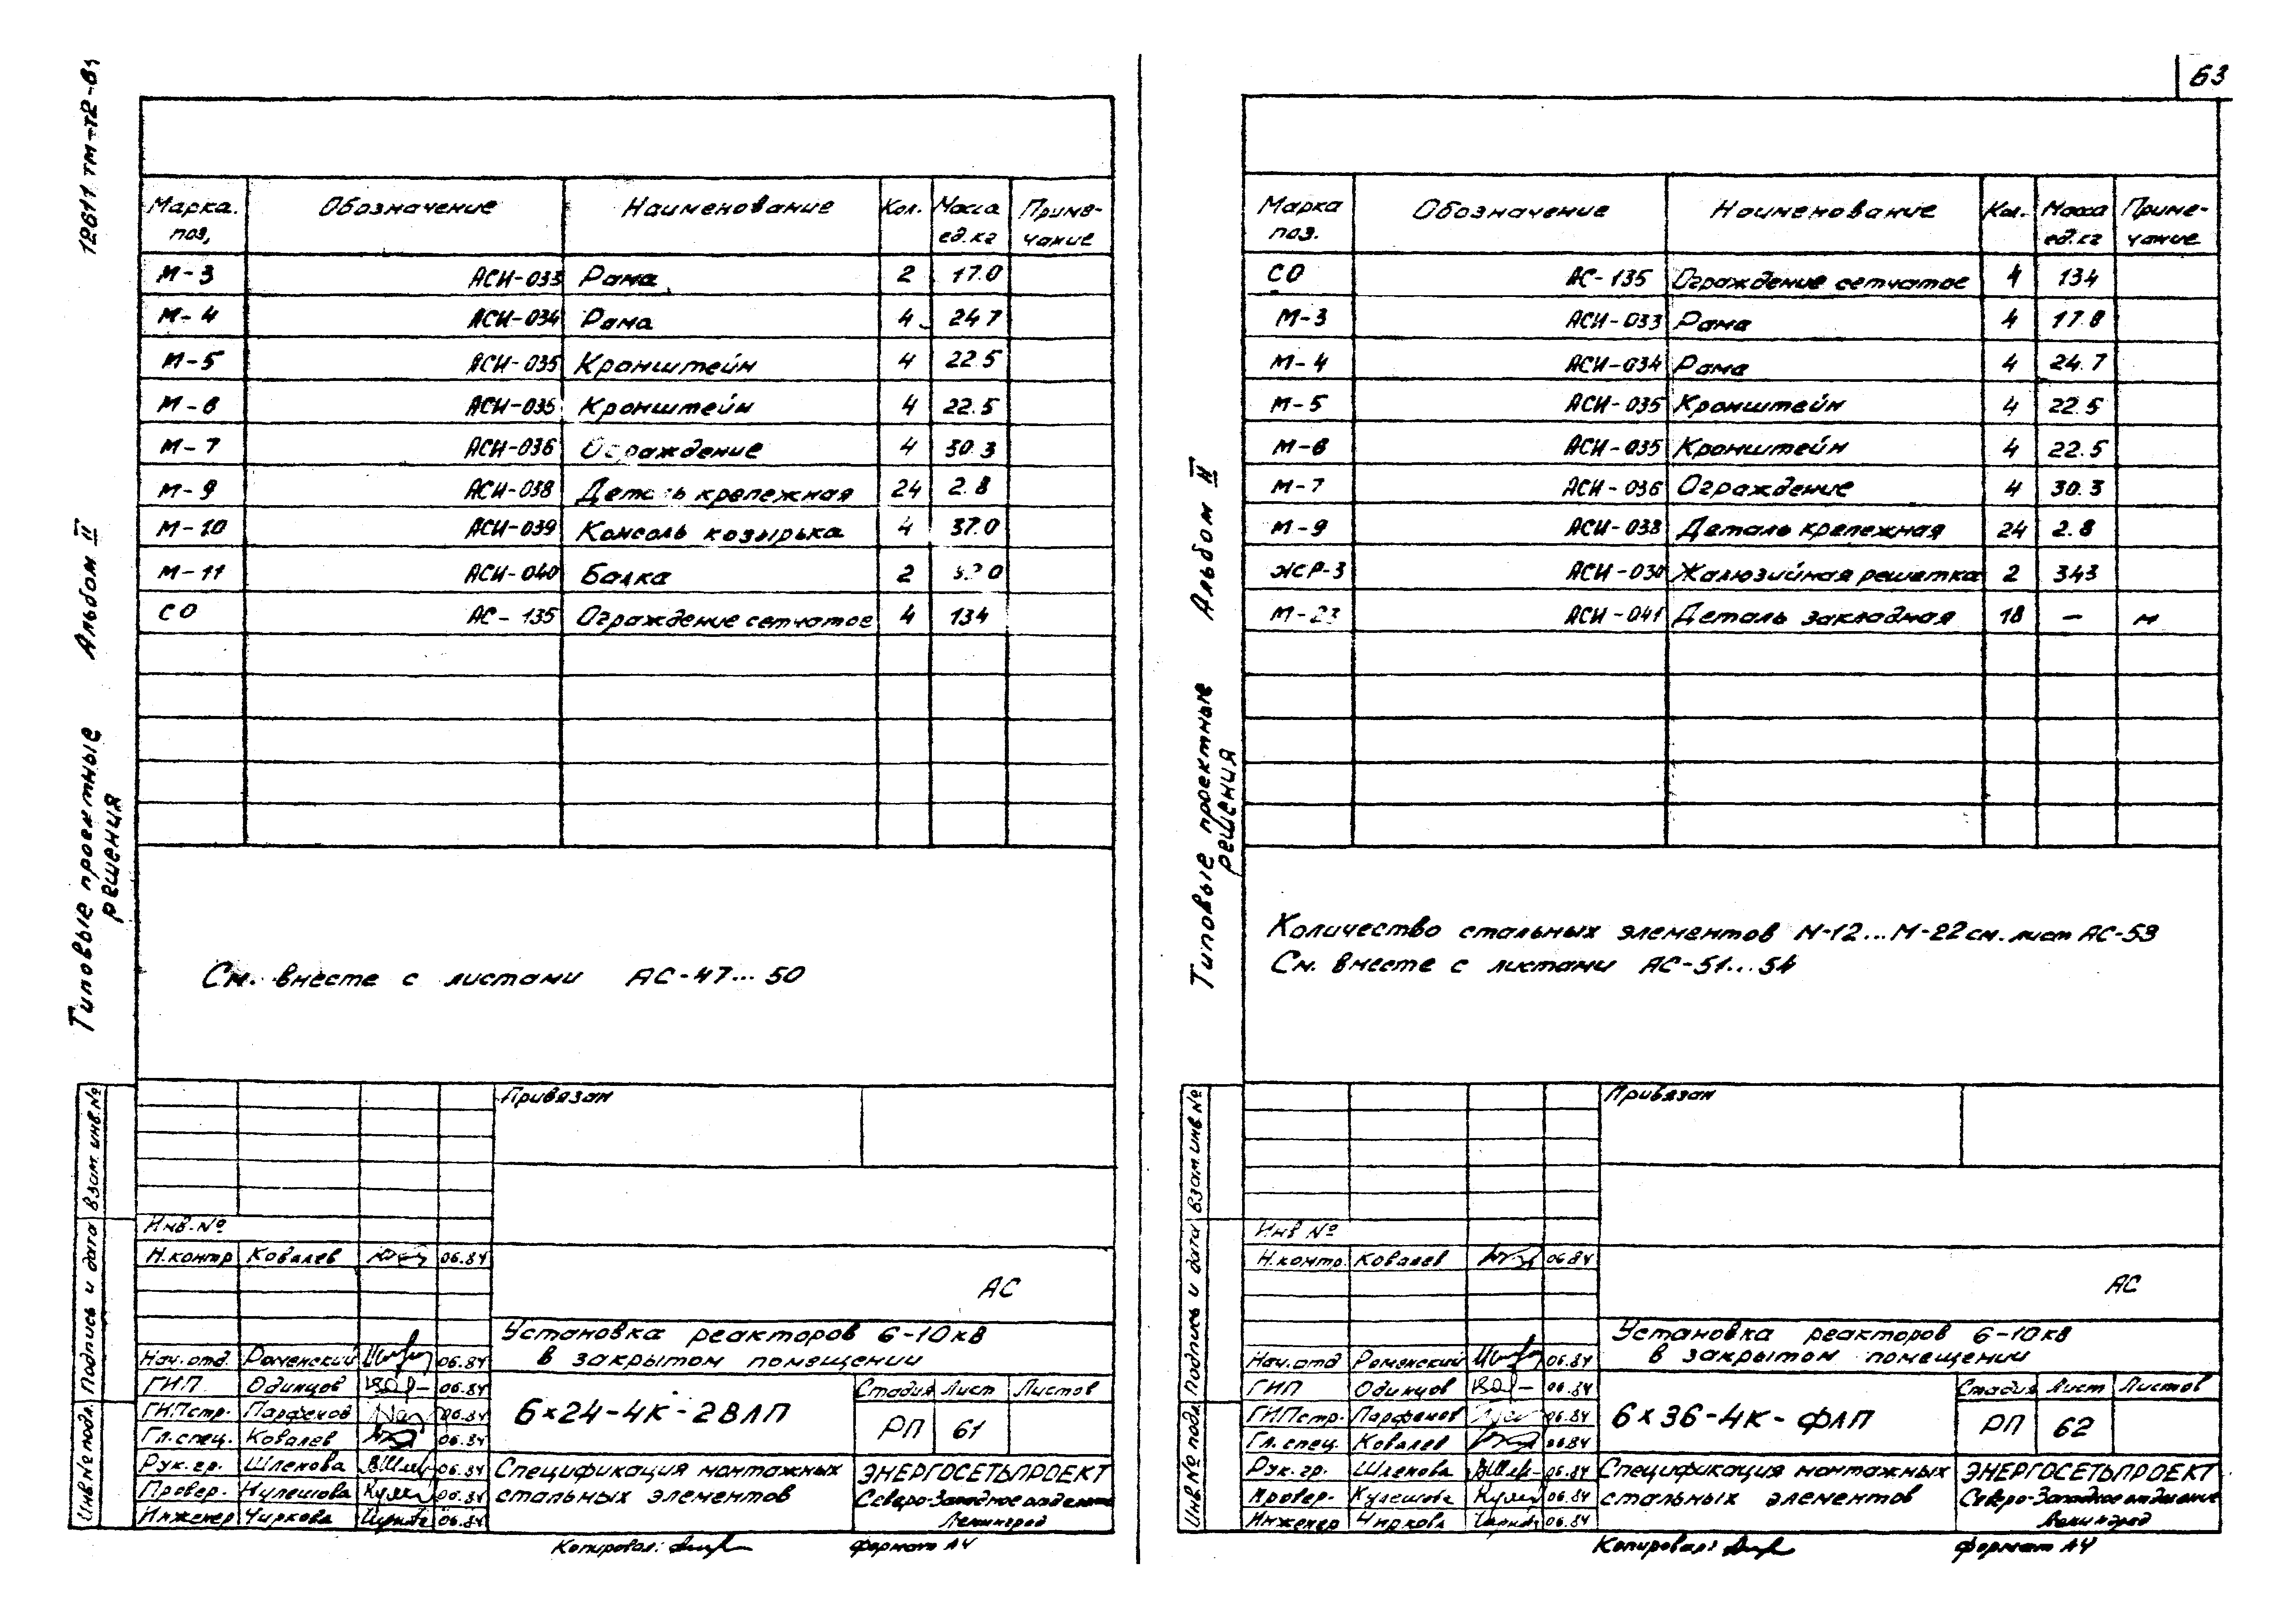 12611 тм-т2-
Типовые проектные решения Альбом II
Марка поз, Обозначение Наименование Кол. Масса ед.кг Примечание
М-3 АСИ-033 Рама 2 17.0
М-4 АСИ-034 Рама 4 24.7
М-5 АСИ-035 Кронштейн 4 22.5
М-6 АСИ-035 Кронштейн 4 22.5
М-7 АСИ-036 Ограждение 4 30.3
М-9 АСИ-038 Деталь крепежная 24 2.8
М-10 АСИ-039 Консоль козырька 4 37.0
М-11 АСИ-040 Балка 2
СО АС-135 Ограждение сетчатое 4 134
См. вместе с листами АС-47...50
Привязан
Инв.№
Н.контр Ковалев 06.84
АС
Установка реакторов 6-10кв
в закрытом помещении
Нач.отд. Роменский 06.84
ГИП Одинцов 06.84
ГИПстр. Парфенов 06.84
Гл.спец. Ковалев 06.84
Рук.гр. Шлекова 06.84
Провер. Кулешова 06.84
Инженер Чиркова 06.84
6×24-4К-2ВЛП
Стадия Лист Листов
РП 61
Спецификация монтажных
стальных элементов
ЭНЕРГОСЕТЬПРОЕКТ
Северо-Западное отделение
Ленинград
Инв.№ подл. Подпись и дата Взам.инв.№
Копировал:
формат А4
63
Типовые проектные решения Альбом II
Марка поз. Обозначение Наименование Кол. Масса ед.кг Примечание
СО АС-135 Ограждение сетчатое 4 134
М-3 АСИ-033 Рама 4 17.0
М-4 АСИ-034 Рама 4 24.7
М-5 АСИ-035 Кронштейн 4 22.5
М-6 АСИ-035 Кронштейн 4 22.5
М-7 АСИ-036 Ограждение 4 30.3
М-9 АСИ-038 Деталь крепежная 24 2.8
ЖСР-3 АСИ-030 Жалюзийная решетка 2 343
М-23 АСИ-041 Деталь закладная 18 — м
Количество стальных элементов М-12...М-22 см. лист АС-53
См. вместе с листами АС-51...54
Привязан
Инв №
Н.контр. Ковалев 06.84
АС
Установка реакторов 6-10кв
в закрытом помещении
Нач.отд Роменский 06.84
ГИП Одинцов 06.84
ГИПстр. Парфенов 06.84
Гл.спец. Ковалев 06.84
Рук.гр. Шлекова 06.84
Провер. Кулешова 06.84
Инженер Чиркова 06.84
6×36-4К-ФЛП
Стадия Лист Листов
РП 62
Спецификация монтажных
стальных элементов
ЭНЕРГОСЕТЬПРОЕКТ
Северо-Западное отделение
Ленинград
Инв.№ подл. Подпись и дата Взам.инв№
Копировал:
формат А4